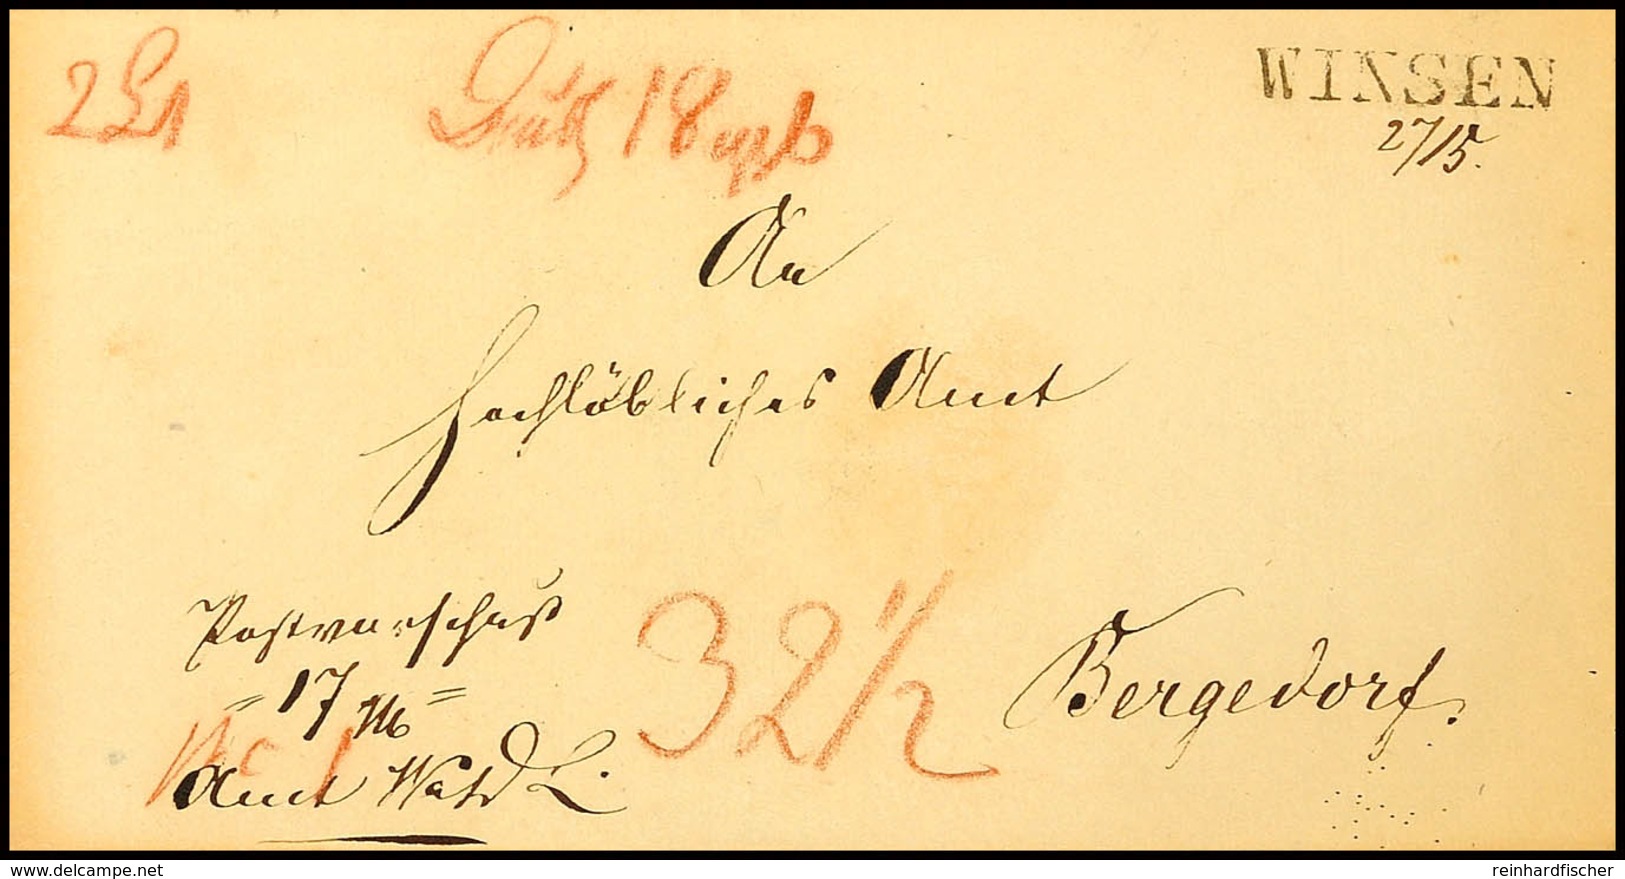 WINSEN
27/5.
18
An
Hochlöbliches Amt
Postvorschuß
= 17 =
32 1/2
Bergedorf.
Amt
delcampe.net
reinhardfischer